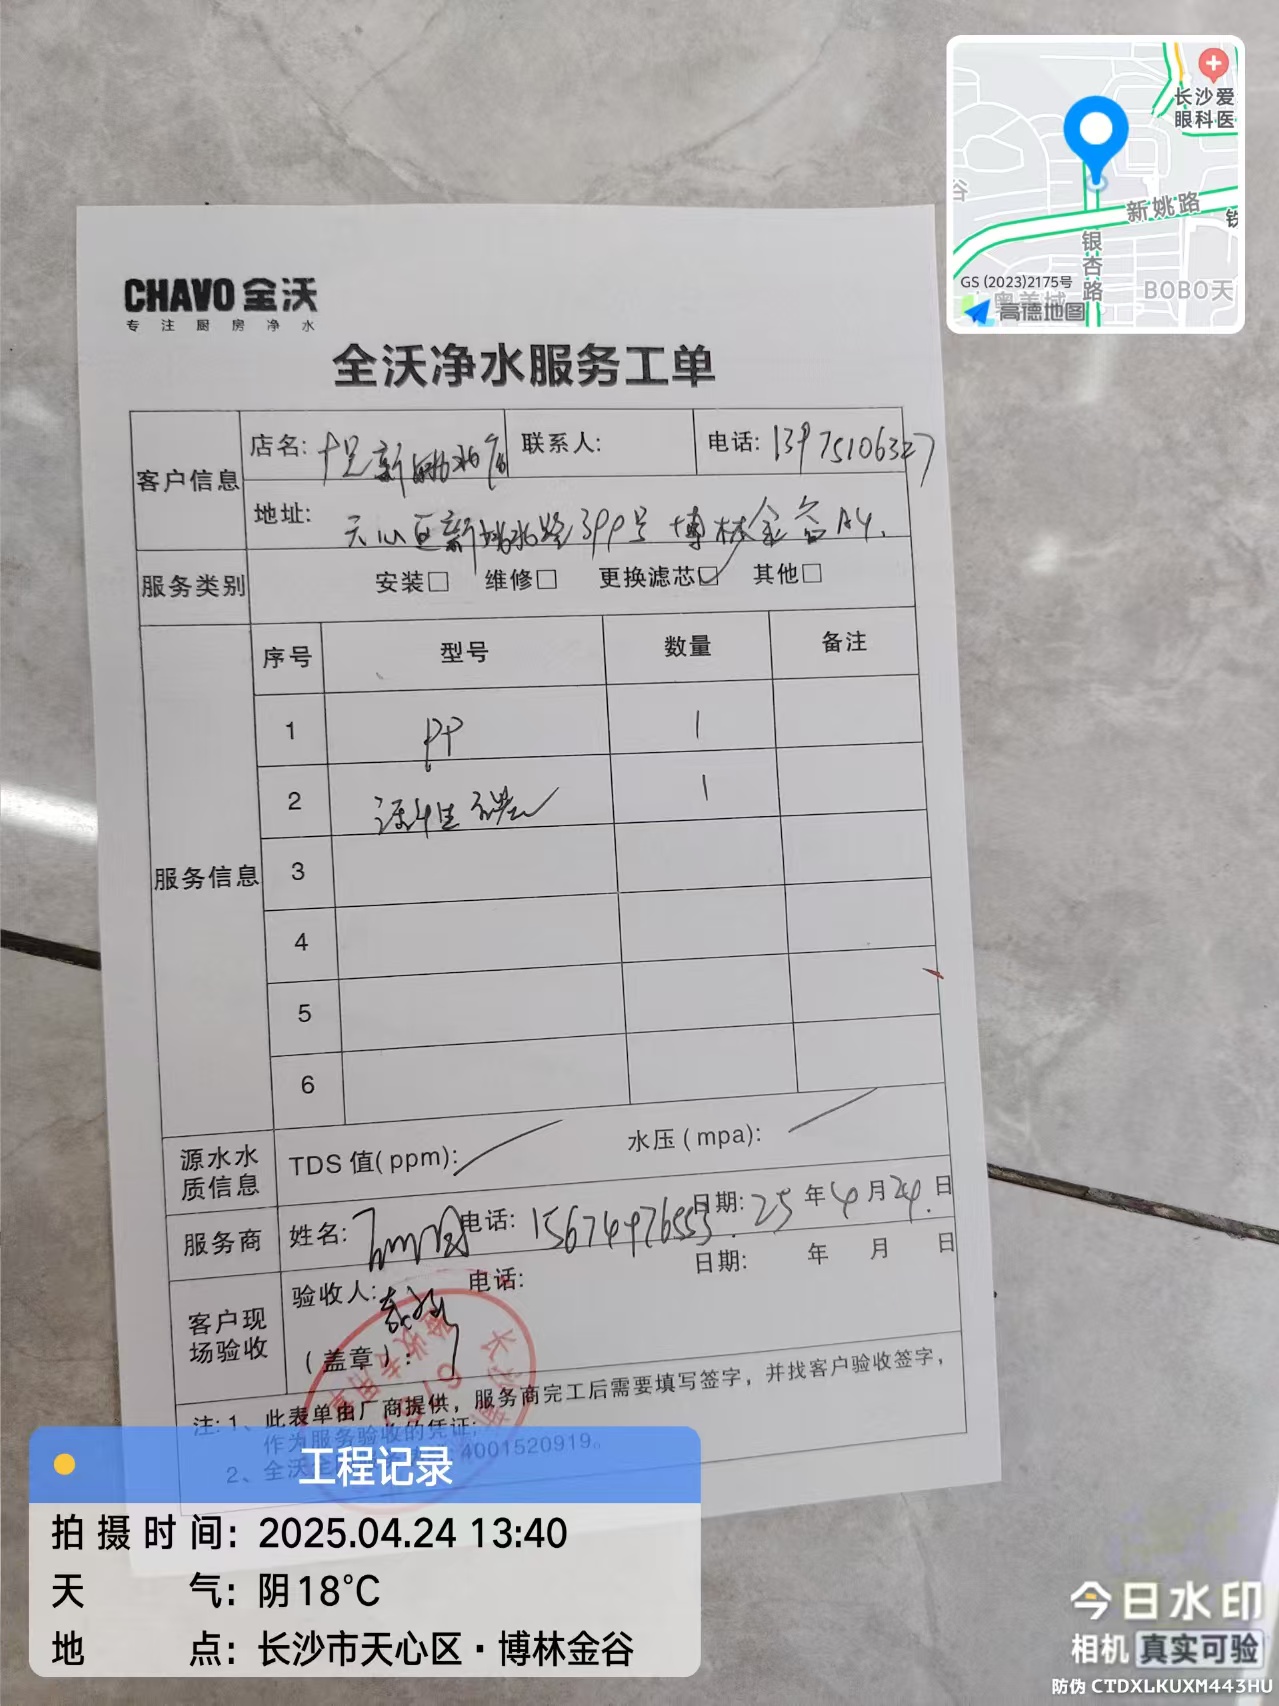 长沙爱
眼科医
谷
新姚路
铁
银杏路
GS (2023)2175号
BOBO天
高德地图
CHAVO 全沃
专注厨房净水
全沃净水服务工单
客户信息
店名:
联系人:
电话: 13975106327
地址: 天心区新姚路399号 博林金谷A4.
服务类别
安装□ 维修□ 更换滤芯☑ 其他□
服务信息
序号 型号 数量 备注
1 PP 1
2 1
3
4
5
6
源水水质信息
TDS 值(ppm): / 水压(mpa): /
服务商
姓名: 电话: 15674976553. 日期: 25年4月24日
客户现场验收
验收人: 电话: 日期: 年 月 日
(盖章):
注: 1、此表单由厂商提供, 服务商完工后需要填写签字, 并找客户验收签字,
作为服务验收的凭证;
2、全沃 4001520919。
工程记录
拍摄时间: 2025.04.24 13:40
天气: 阴18°C
地点: 长沙市天心区·博林金谷
今日水印
相机 真实可验
防伪 CTDXLKUXM443HU